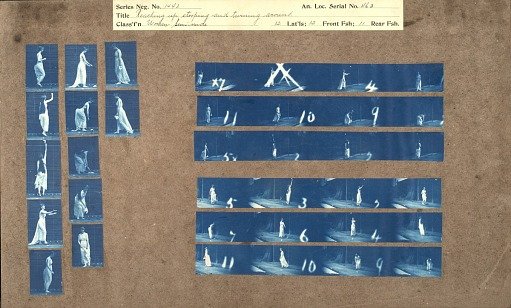 Series Neg. No. 1443 An. Loc. Serial No. 463
Title Reaching up, stooping and turning around
Class'f'n Woman Semi-nude 12 Lat'ls; 12 Front Fsh; 11 Rear Fsh.
12 4
11 10 9
5 3
6 4
11 10 9